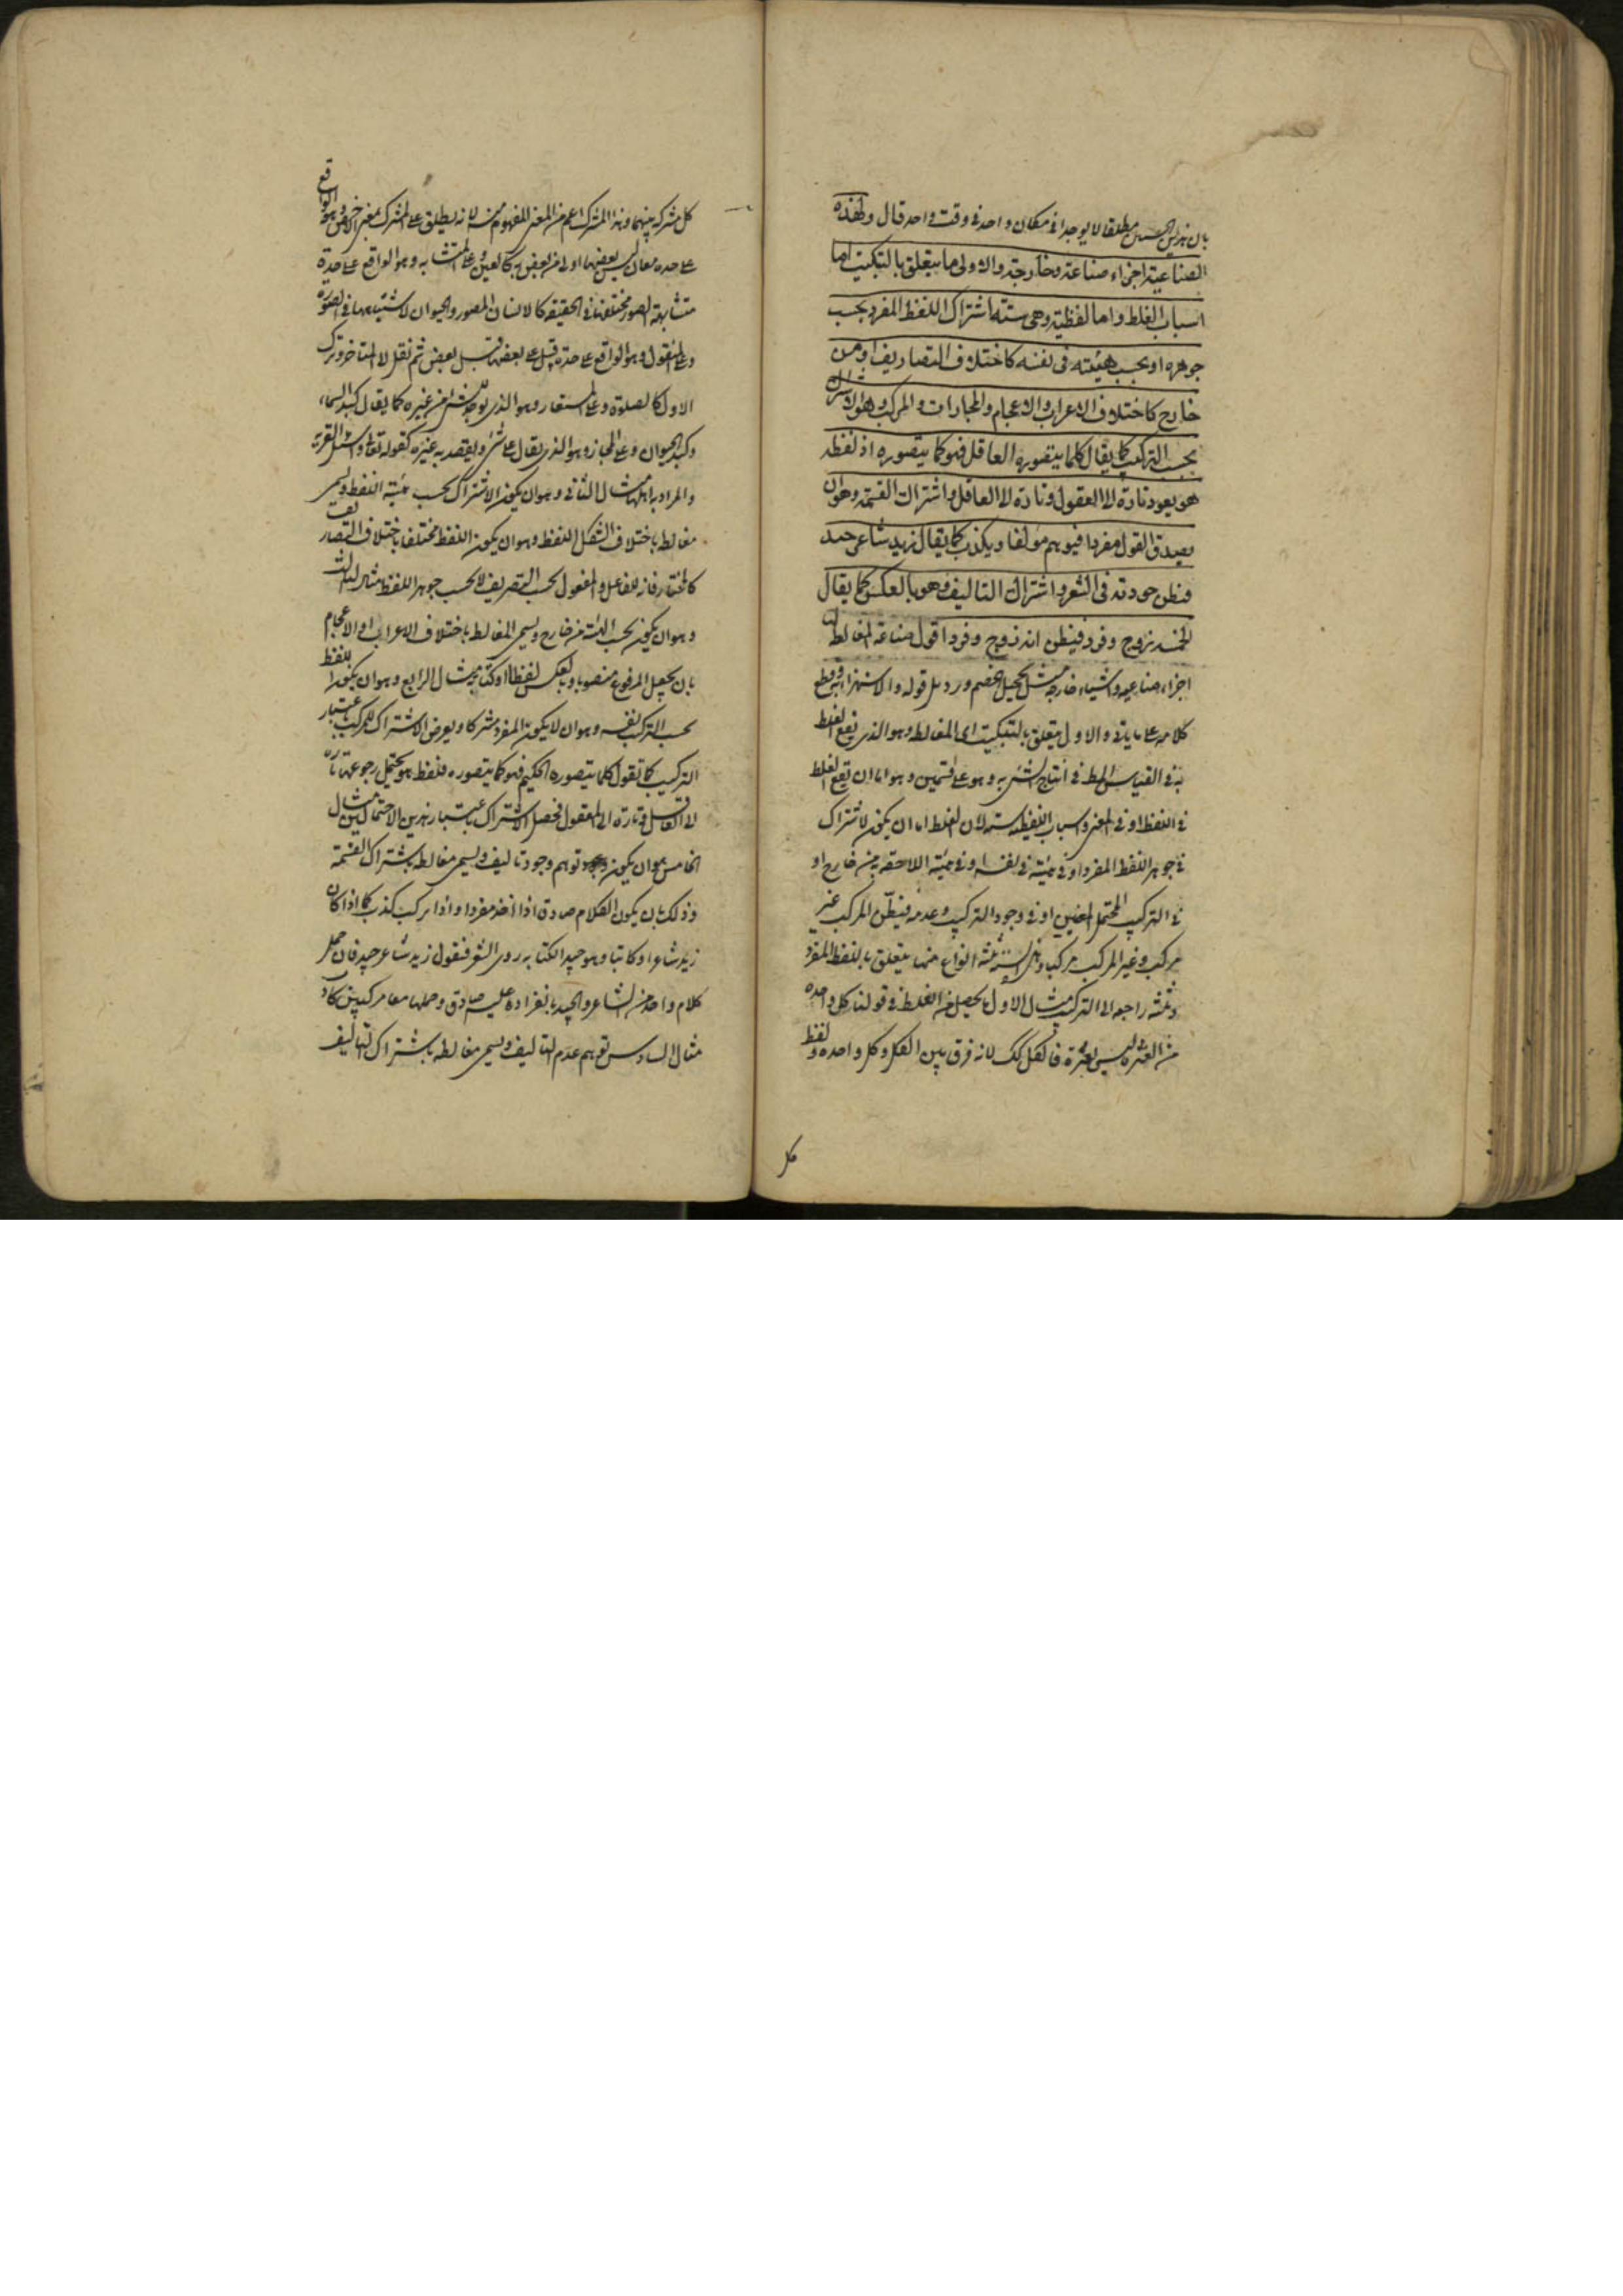 بان هذين الجنسين مطلقا لا يوجدا في مكان واحد في وقت واحد قال ولهذه
الصناعية اجزاء صناعته وخارجته والاولى ما يتعلق بالتبكيت اما
اسباب الغلط واما لفظية وهي ستة اشتراك اللفظ المفرد بحسب
جوهره او بحسب هيئته في نفسه كاختلاف التصاريف او من
خارج كاختلاف الاعراب والاعجام والمجازات والمركب وهو الاشتراك
بحسب التركيب كما يقال كلما يتصوره العاقل فهو كما يتصوره اذ لفظه
هو يعود تارة الى المعقول وتارة الى العاقل واشتراك القسمة وهو ان
يصدق القول مفردا فيوهم مؤلفا ويكذب كما يقال زيد شاعر جيد
فيظن جودته في الشعر واشتراك التاليف وهو بالعكس كما يقال
الخمسه زوج وفرد فيظن انه زوج وفرد اقول صناعة المغالطة لها
اجزاء صناعيه واشياء خارجه مثل تخجيل الخصم ورذل قوله والاستهزاء به وقطع
كلامه على ما ياتي والاول يتعلق بالتبكيت اى المغالطه وهو الذي يقع الغلط
به في القياس المط في انتاج الشئ به وهو على قسمين وهو اما ان يقع الغلط
في اللفظ او في المعنى واسباب اللفظيه سته لان الغلط اما ان يكون لاشتراك
في جوهر اللفظ المفرد او في هيئة في نفسه او في هيئة اللاحقه به من خارج او
في التركيب المحتمل لمعنيين او في وجود التركيب وعدمه فيظن المركب غير
مركب وغير المركب مركبا وهذه الستة ثلثة انواع منها يتعلق باللفظ المفرد
وثلثه راجعه الى التركيب مثال الاول ما يحصل من الغلط في قولنا كل واحده
من العشره ليس بعشرة فالكل كك لانه فرق بين الكل وكل واحده ولفظ
كل
كل مشتركه بينهما وهذا المشترك اعم من المعنى المفهوم منه لانه يطلق على المشترك بمعنى الاخص وهو الواقع
على حده معان ليس بعضها اولى من البعض به كالعين وعلى المتشابه وهو الواقع على حدة
متشابهة الصور مختلفه في الحقيقه كالانسان المصور والحيوان لاشتباهها في الصورة
وعلى المنقول وهو الواقع على حدة قيل على بعضها قبل بعض ثم نقل الى المتاخر وترك
الاول كالصلوة وعلى المستعار وهو الذي يوجد لشئ من غيره كما يقال كبد السماء
وكبد الحيوان وعلى المجاز وهو الذي يقال على شئ ويقصد به غيره كقوله تعالى واسئل القرية
والمراد به اهلها مثال الثاني وهو ان يكون الاشتراك بحسب هيئة اللفظ ويسمى
مغالطه باختلاف الشكل اللفظ وهو ان يكون اللفظ مختلفا باختلاف التصاريف
كالمختار فانه للفاعل والمفعول بحسب التصريف لا بحسب جوهر اللفظ مثال الثالث
وهو ان يكون بحسب الهيئة من خارج ويسمى المغالطه باختلاف الاعراب او الاعجام
بان يجعل المرفوع منصوبا وبالعكس لفظا او كتابة مثال الرابع وهو ان يكون اللفظ
بحسب التركيب نفسه وهو ان لا يكون المفرد مشتركا ويعرض الاشتراك للمركب باعتبار
التركيب كما تقول كلما يتصوره الحكيم فهو كما يتصوره فلفظ هو يحتمل رجوعه تارة
الى العاقل وتارة الى المعقول فحصل الاشتراك باعتبار هذين الاحتمالين مثال
الخامس هو ان يكون توهم وجود تاليف ويسمى مغالطه باشتراك القسمة
وذلك بان يكون الكلام صادق اذا اخذ مفردا واذا تركب كذب كما اذا كان
زيد شاعرا وكاتبا وهو جيد الكتابه ردى الشعر فنقول زيد شاعر جيد فان حمل
كلام واحد من الشاعر والجيد بانفراده عليه صادق وحملهما معا مركبين كاذ
مثال السادس توهم عدم التاليف ويسمى مغالطه باشتراك التاليف